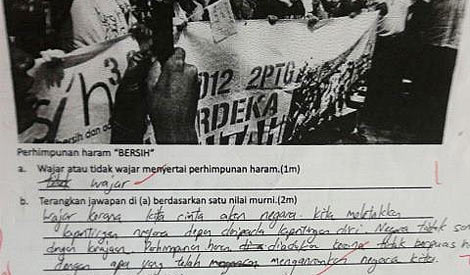 si h 3
bersih dan ad
2012 2PTG
RDEKA
Perhimpunan haram "BERSIH"
a. Wajar atau tidak wajar menyertai perhimpunan haram.(1m)
wajar
1
b. Terangkan jawapan di (a) berdasarkan satu nilai murni.(2m)
Wajar kerana kita cinta akan negara. kita meletakkan
kepentingan negara depan daripada kepentingan diri. Negara tidak sama
dengan kerajaan. Perhimpunan haram diadakan kerana tidak berpuas h
dengan apa yang telah negara kita.